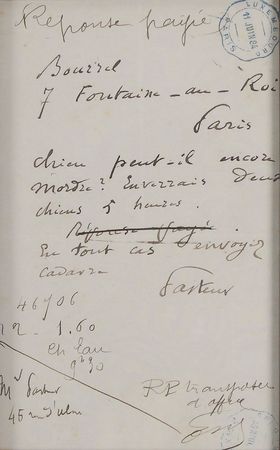 Réponse payée
Bourrel
7 Fontaine-au-Roi
Paris
chien peut-il encore
mordre? Enverrais deux
chiens 5 heures.
Réponse payée.
En tout cas envoyez
cadavre
Pasteur
46706
22 - 1.60
9h30
Mr Pasteur
45 r. d'Ulm
RP transposée
d'office
14 JUIN 84